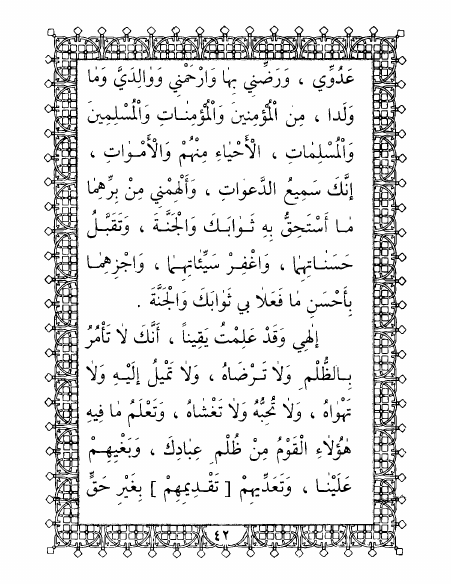 عَدُوِّي ، وَرَضِّنِي بِهَا وَارْحَمْنِي وَوَالِدَيَّ وَمَا
وَلَدا ، مِنَ الْمُؤْمِنِينَ وَالْمُؤْمِنَاتِ وَالْمُسْلِمِينَ
وَالْمُسْلِمَاتِ ، الْأَحْيَاءِ مِنْهُمْ وَالْأَمْوَاتِ ،
إِنَّكَ سَمِيعُ الدَّعَواتِ ، وَأَلْهِمْنِي مِنْ بِرِّهِمَا
مَا أَسْتَحِقُّ بِهِ ثَوَابَكَ وَالْجَنَّةَ ، وَتَقَبَّلْ
حَسَنَاتِهِمَا ، وَاغْفِرْ سَيِّئَاتِهِمَا ، وَاجْزِهِمَا
بِأَحْسَنِ مَا فَعَلَا بِي ثَوَابَكَ وَالْجَنَّةَ .
إِلٰهِي وَقَدْ عَلِمْتُ يَقِيناً ، أَنَّكَ لَا تَأْمُرُ
بِالظُّلْمِ وَلَا تَرْضَاهُ ، وَلَا تَمِيلُ إِلَيْهِ وَلَا
تَهْوَاهُ ، وَلَا تُحِبُّهُ وَلَا تَغْشَاهُ ، وَتَعْلَمُ مَا فِيهِ
هٰؤُلَاءِ الْقَوْمُ مِنْ ظُلْمِ عِبَادِكَ ، وَبَغْيِهِمْ
عَلَيْنَا ، وَتَعَدِّيهِمْ [ تَقْدِيمِهِمْ ] بِغَيْرِ حَقٍّ
٤٢